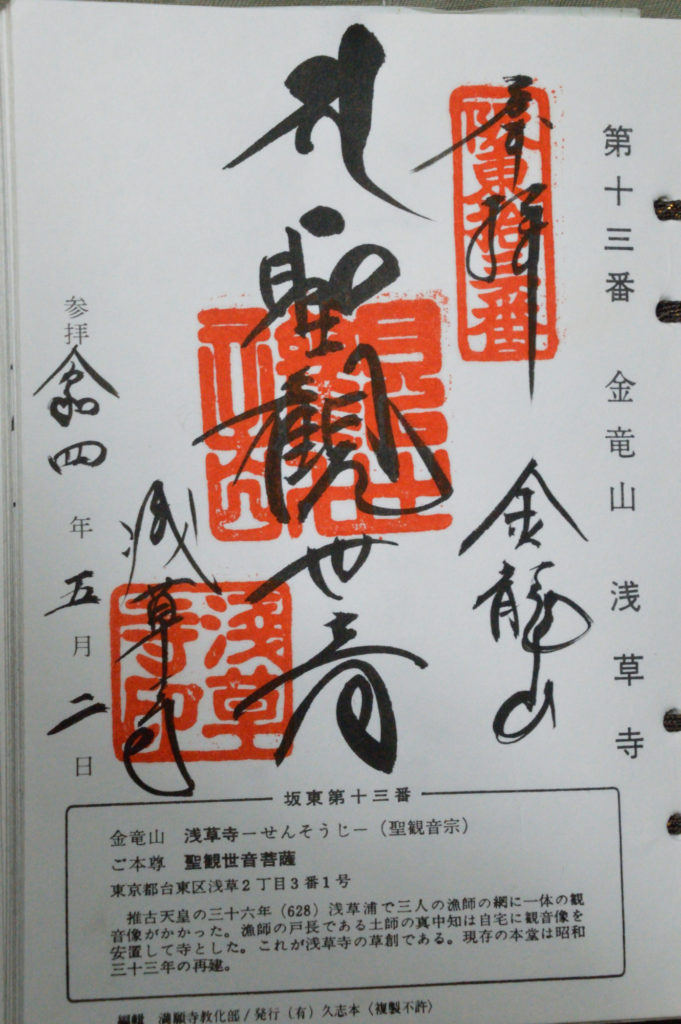 第十三番 金竜山 浅草寺
奉拝
坂東拾三番
金龍山
聖観世音
浅草寺
浅草寺印
参拝 令和四年五月二日
坂東第十三番
金竜山 浅草寺－せんそうじ－（聖観音宗）
ご本尊 聖観世音菩薩
東京都台東区浅草２丁目３番１号
推古天皇の三十六年（628）浅草浦で三人の漁師の網に一体の観
音像がかかった。漁師の戸長である土師の真中知は自宅に観音像を
安置して寺とした。これが浅草寺の草創である。現存の本堂は昭和
三十三年の再建。
編輯 満願寺教化部/発行（有）久志本〈複製不許〉